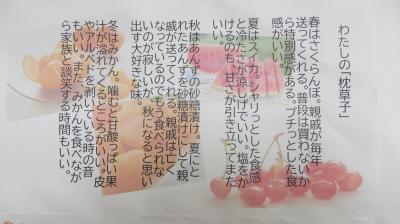 わたしの「枕草子」
春はさくらんぼ。親戚が毎年
送ってくれる。普段は買わないか
ら特別感がある。プチっとした食
感がいい。
夏はスイカ。シャリっとした食感
と冷たさが涼しげでいい。塩をか
けるのも、甘さが引き立ってまた
いい。
秋はあんずの砂糖漬け。夏にと
れたあんずを砂糖漬けにして親
戚が送ってくれる。親戚は亡く
なっているのでもう食べられな
いのが寂しいが、秋になると思い
出す大好きな味。
冬はみかん。噛むと甘酸っぱい果
汁が溢れてくるところがいい。皮
やアルベドを剥いている時の音
もいい。また、みかんを食べなが
ら家族と談笑する時間もいい。